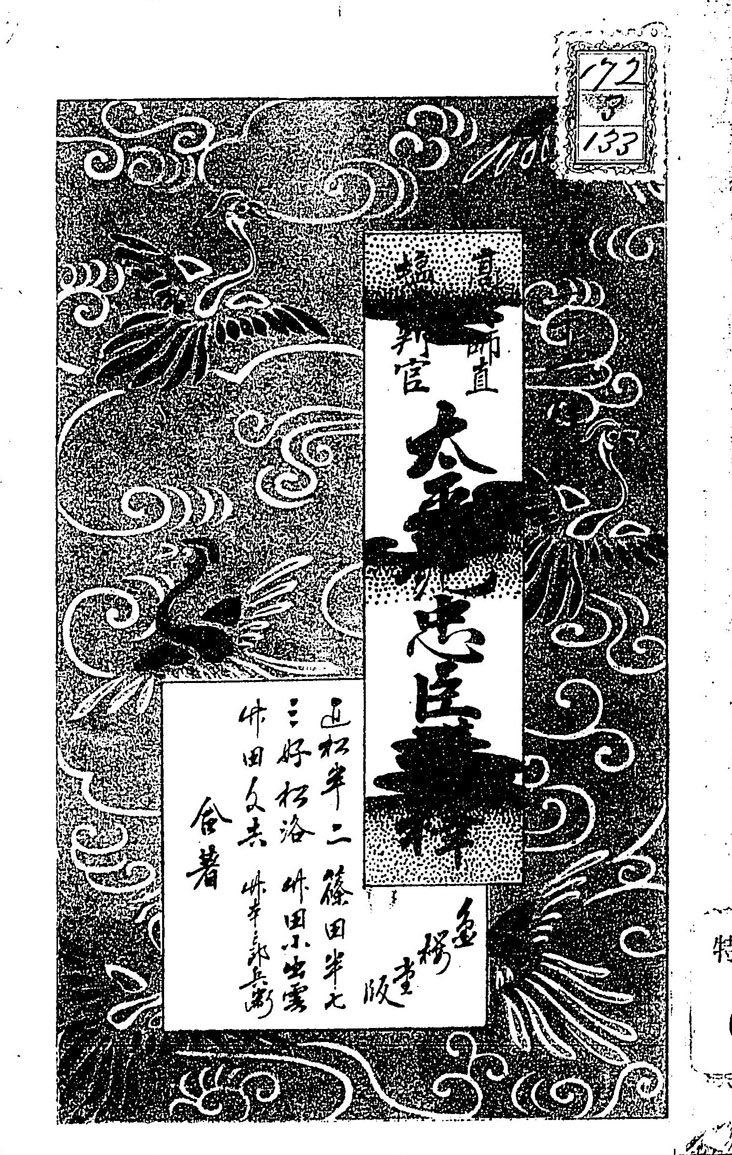 172
133
高師直
塩判官
太平記忠臣講釈
近松半二 篠田半七
三好松洛 竹田小出雲
竹田文吉 竹本三郎兵衛
合著
堂版
特